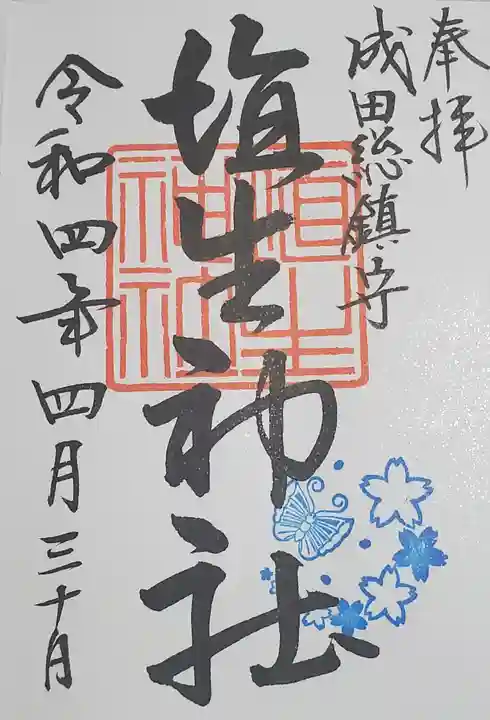 奉拝
成田総鎮守
埴生神社
埴生
神社
令和四年四月三十日